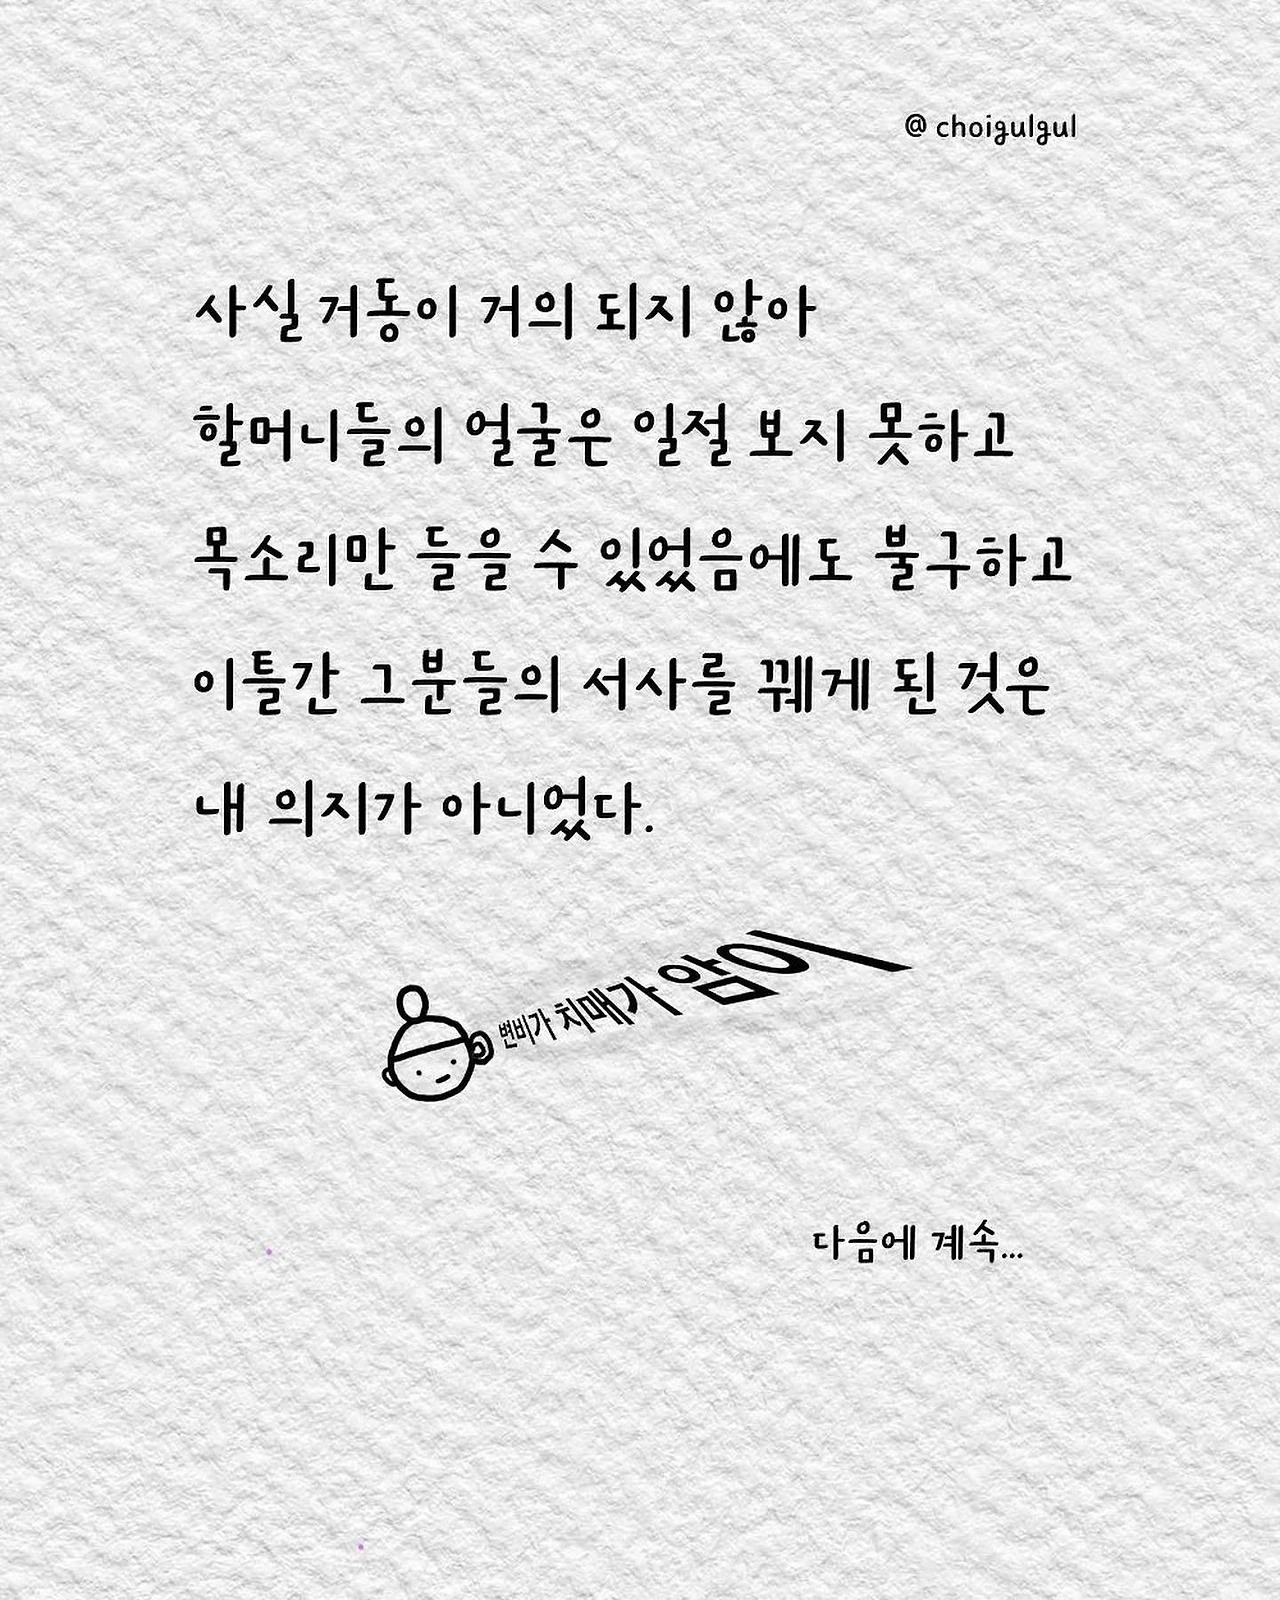 @ choigulgul
사실 거동이 거의 되지 않아
할머니들의 얼굴은 일절 보지 못하고
목소리만 들을 수 있었음에도 불구하고
이틀간 그분들의 서사를 꿰게 된 것은
내 의지가 아니었다.
변비가 치매가 암이
다음에 계속...